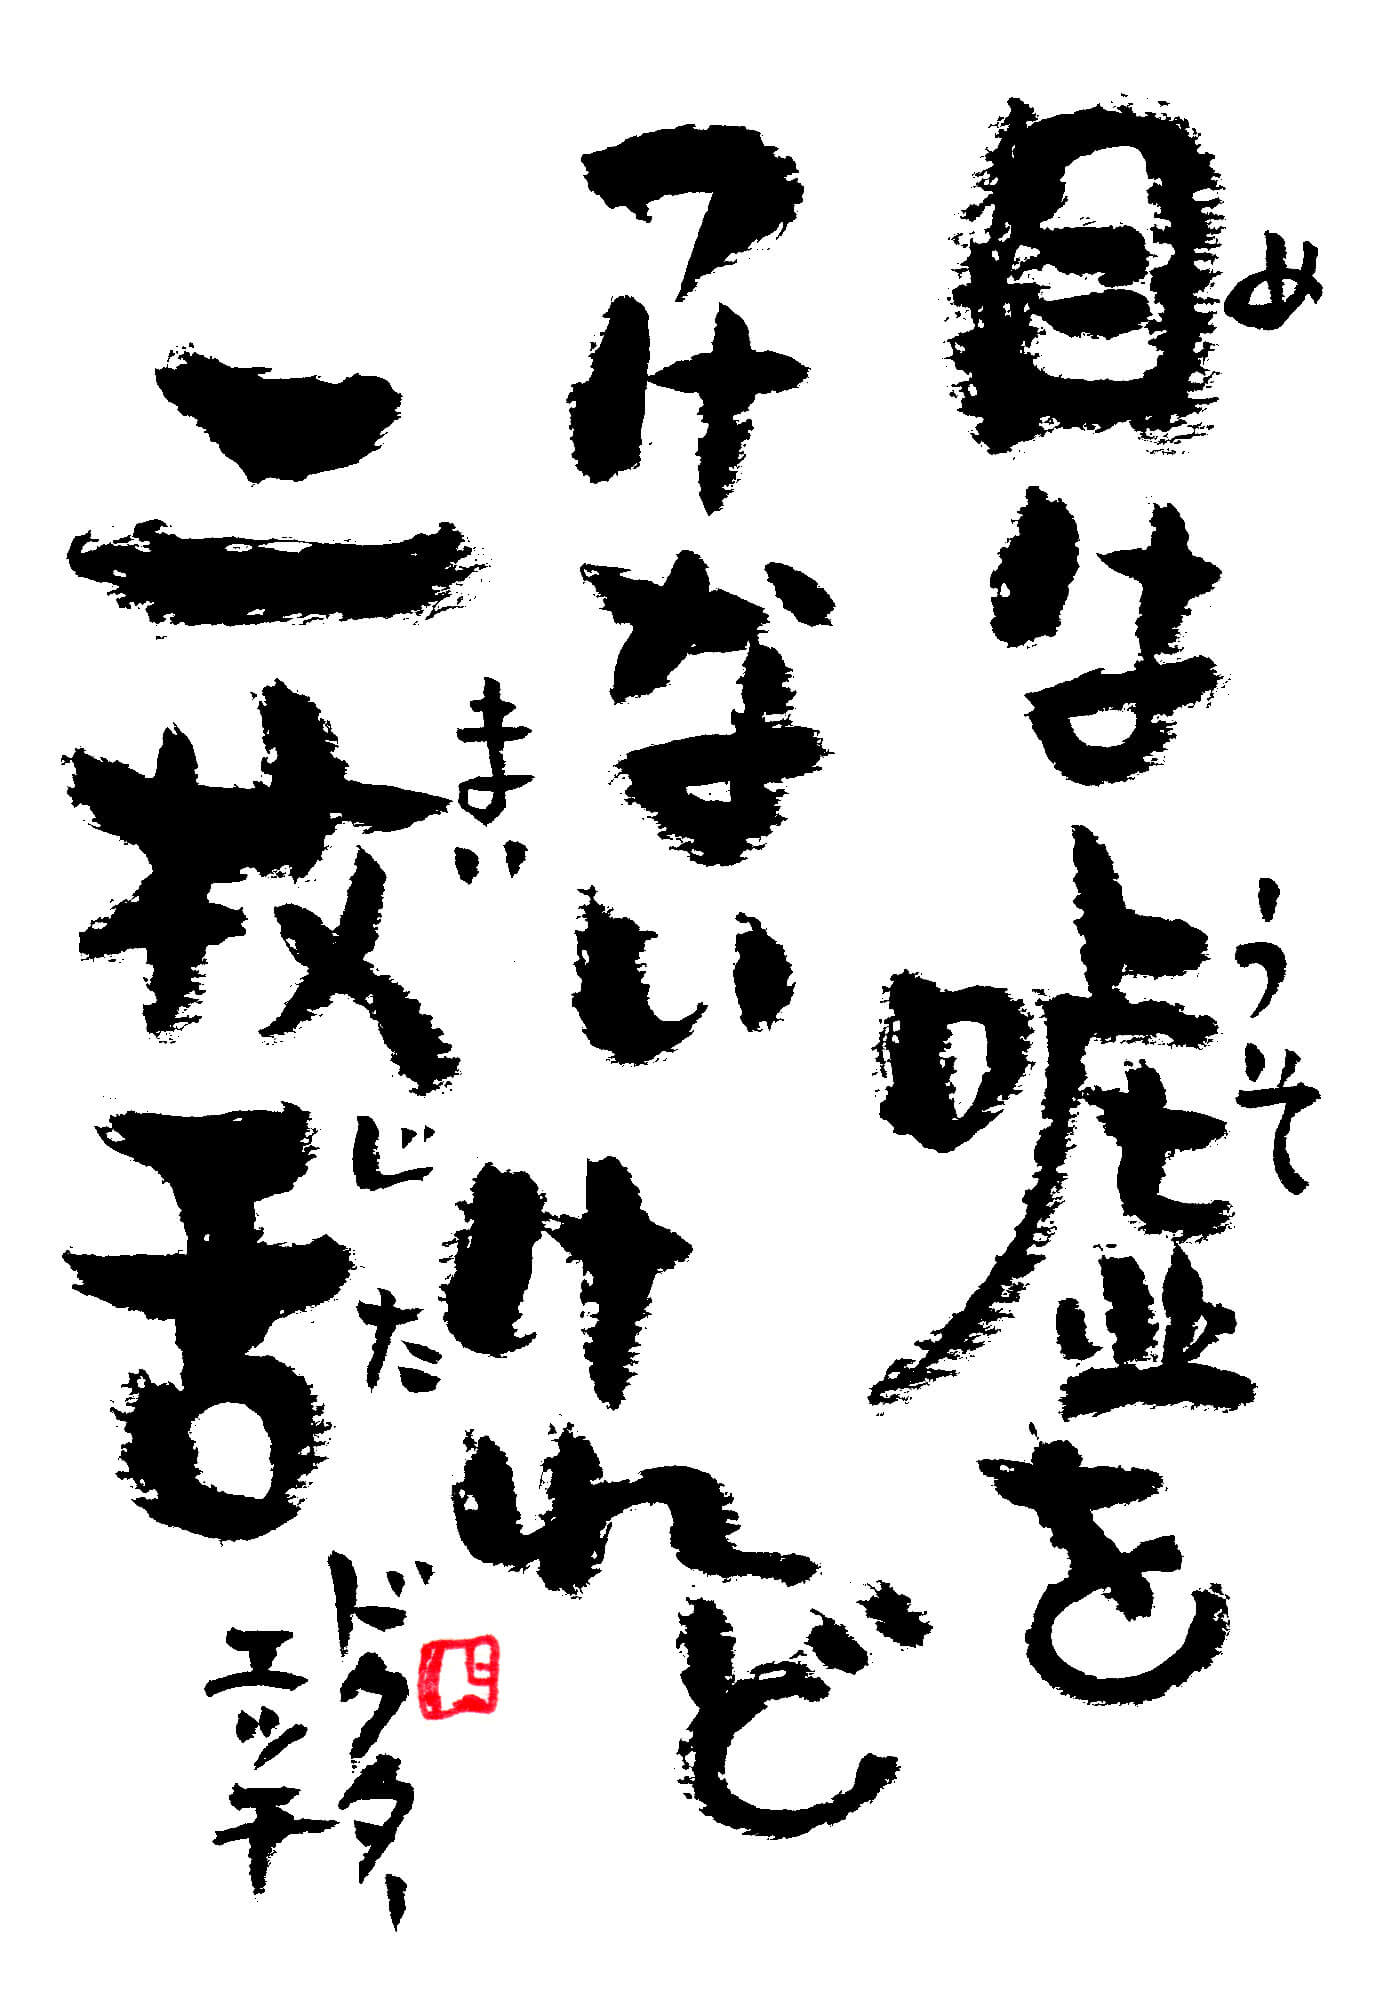 目は嘘を
め
うそ
つけないけれど
二枚舌
まい
じた
ドクター
エッチ